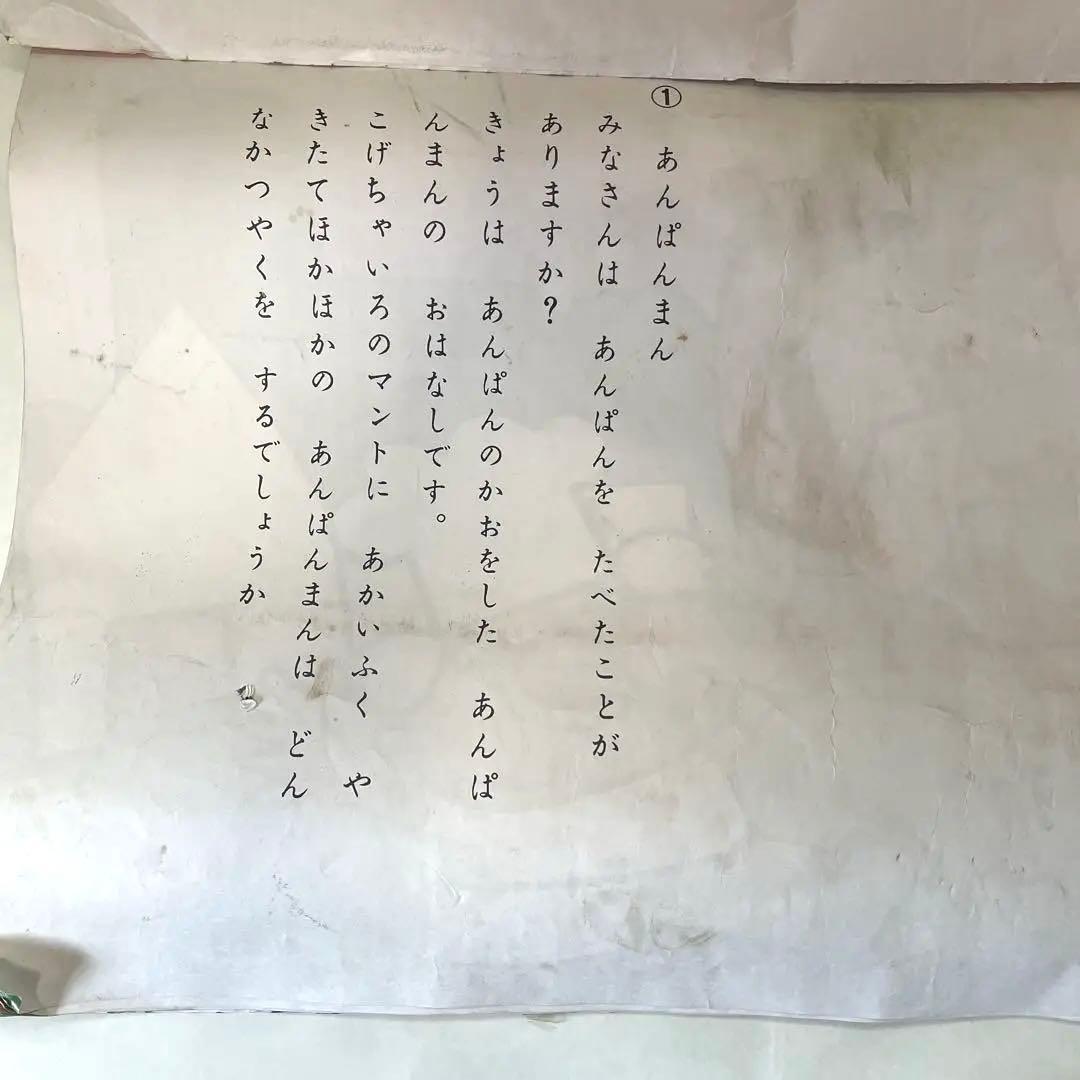 ① あんぱんまん
みなさんは　あんぱんを　たべたことが
ありますか？
きょうは　あんぱんのかおをした　あんぱ
んまんの　おはなしです。
こげちゃいろのマントに　あかいふく　や
きたてほかほかの　あんぱんまんは　どん
なかつやくを　するでしょうか